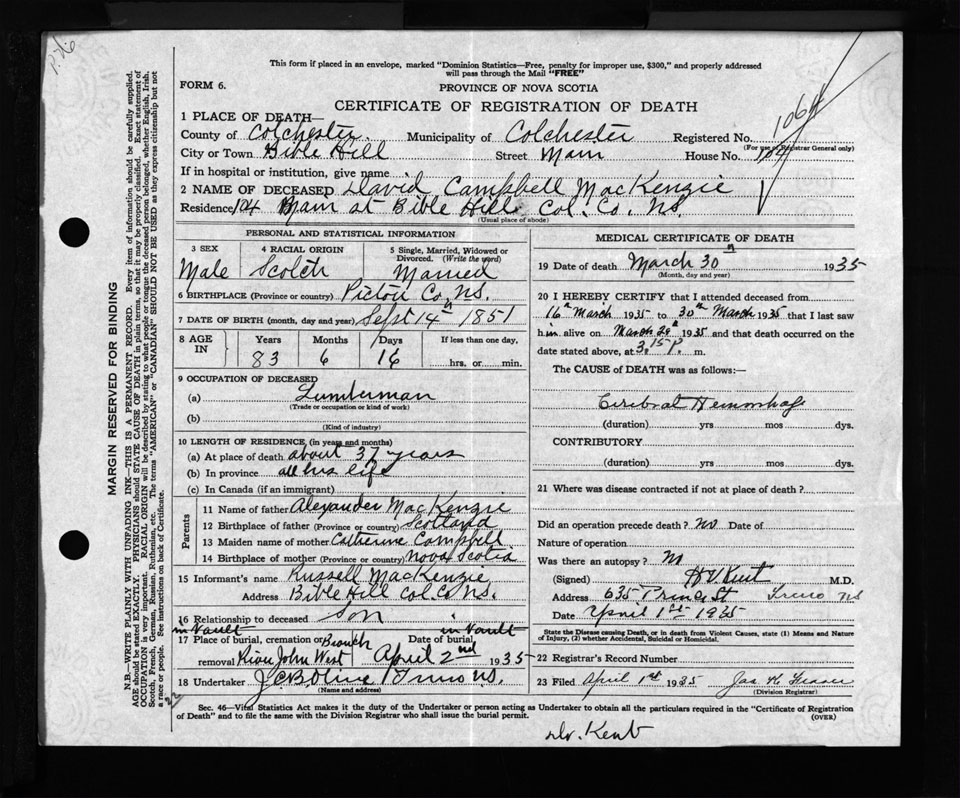 This form if placed in an envelope, marked "Dominion Statistics—Free, penalty for improper use, $300," and properly addressed
will pass through the Mail "FREE"
FORM 6.
PROVINCE OF NOVA SCOTIA
CERTIFICATE OF REGISTRATION OF DEATH
1 PLACE OF DEATH—
County of Colchester. Municipality of Colchester Registered No. 1064
(For use of Registrar General only)
City or Town Bible Hill Street Main House No. 104
If in hospital or institution, give name
2 NAME OF DECEASED David Campbell MacKenzie
Residence 104 Main at Bible Hill Col. Co. N.S.
(Usual place of abode)
PERSONAL AND STATISTICAL INFORMATION
3 SEX 4 RACIAL ORIGIN 5 Single, Married, Widowed or Divorced. (Write the word)
Male Scotch Married
6 BIRTHPLACE (Province or country) Pictou Co. N.S.
7 DATE OF BIRTH (month, day and year) Sept 14th 1851
8 AGE IN Years Months Days If less than one day,
83 6 16 hrs. or min.
9 OCCUPATION OF DECEASED
(a) Lumberman
(Trade or occupation or kind of work)
(b)
(Kind of industry)
10 LENGTH OF RESIDENCE (in years and months)
(a) At place of death about 37 years
(b) In province all his life
(c) In Canada (if an immigrant)
Parents
11 Name of father Alexander MacKenzie
12 Birthplace of father (Province or country) Scotland
13 Maiden name of mother Catherine Campbell
14 Birthplace of mother (Province or country) Nova Scotia
15 Informant's name Russell MacKenzie
Address Bible Hill Col. Co N.S.
16 Relationship to deceased Son
in Vault in Vault
17 Place of burial, cremation or Branch Date of burial
removal River John West April 2nd 1935
18 Undertaker Truro N.S.
(Name and address)
MEDICAL CERTIFICATE OF DEATH
19 Date of death March 30th 1935
(Month, day and year)
20 I HEREBY CERTIFY that I attended deceased from
16th March 1935 to 30th March 1935 that I last saw
him alive on March 29th 1935 and that death occurred on the
date stated above, at 3.15 P. m.
The CAUSE of DEATH was as follows:—
Cerebral Hemorrhage
(duration) yrs mos dys.
CONTRIBUTORY
(duration) yrs mos dys.
21 Where was disease contracted if not at place of death?
Did an operation precede death? no Date of
Nature of operation
Was there an autopsy? no
(Signed) H V Kent M.D.
Address 635 Prince St Truro NS
Date April 1st 1935
State the Disease causing Death, or in death from Violent Causes, state (1) Means and
Nature of Injury, (2) whether Accidental, Suicidal or Homicidal.
22 Registrar's Record Number
23 Filed April 1st 1935 Jas H Fraser
(Division Registrar)
Sec. 46—Vital Statistics Act makes it the duty of the Undertaker or person acting as Undertaker to obtain all the particulars required in the "Certificate of Registration
of Death" and to file the same with the Division Registrar who shall issue the burial permit.
(OVER)
Dr. Kent
MARGIN RESERVED FOR BINDING
N.B.—WRITE PLAINLY WITH UNFADING INK—THIS IS A PERMANENT RECORD. Every item of information should be carefully supplied.
AGE should be stated EXACTLY. PHYSICIANS should STATE CAUSE OF DEATH in plain terms, so that it may be properly classified. Exact statement of
OCCUPATION is very important. RACIAL ORIGIN will be described by stating to what people or tongue the deceased person belonged, whether English, Irish,
Scotch, French, German, Russian, Ruthenian, etc. The terms "AMERICAN" or "CANADIAN" SHOULD NOT BE USED as they express citizenship but not
a race or people. See instructions on back of Certificate.